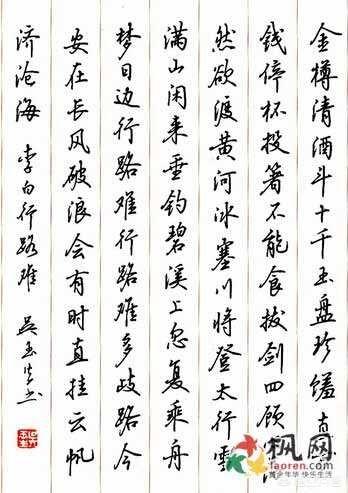 金樽清酒斗十千玉盘珍馐直
钱停杯投箸不能食拔剑四顾
然欲渡黄河冰塞川将登太行雪
满山闲来垂钓碧溪上忽复乘舟
梦日边行路难行路难多歧路今
安在长风破浪会有时直挂云帆
济沧海 李白行路难 吴玉生书
枫网
laoren.com
黄金年华 快乐生活